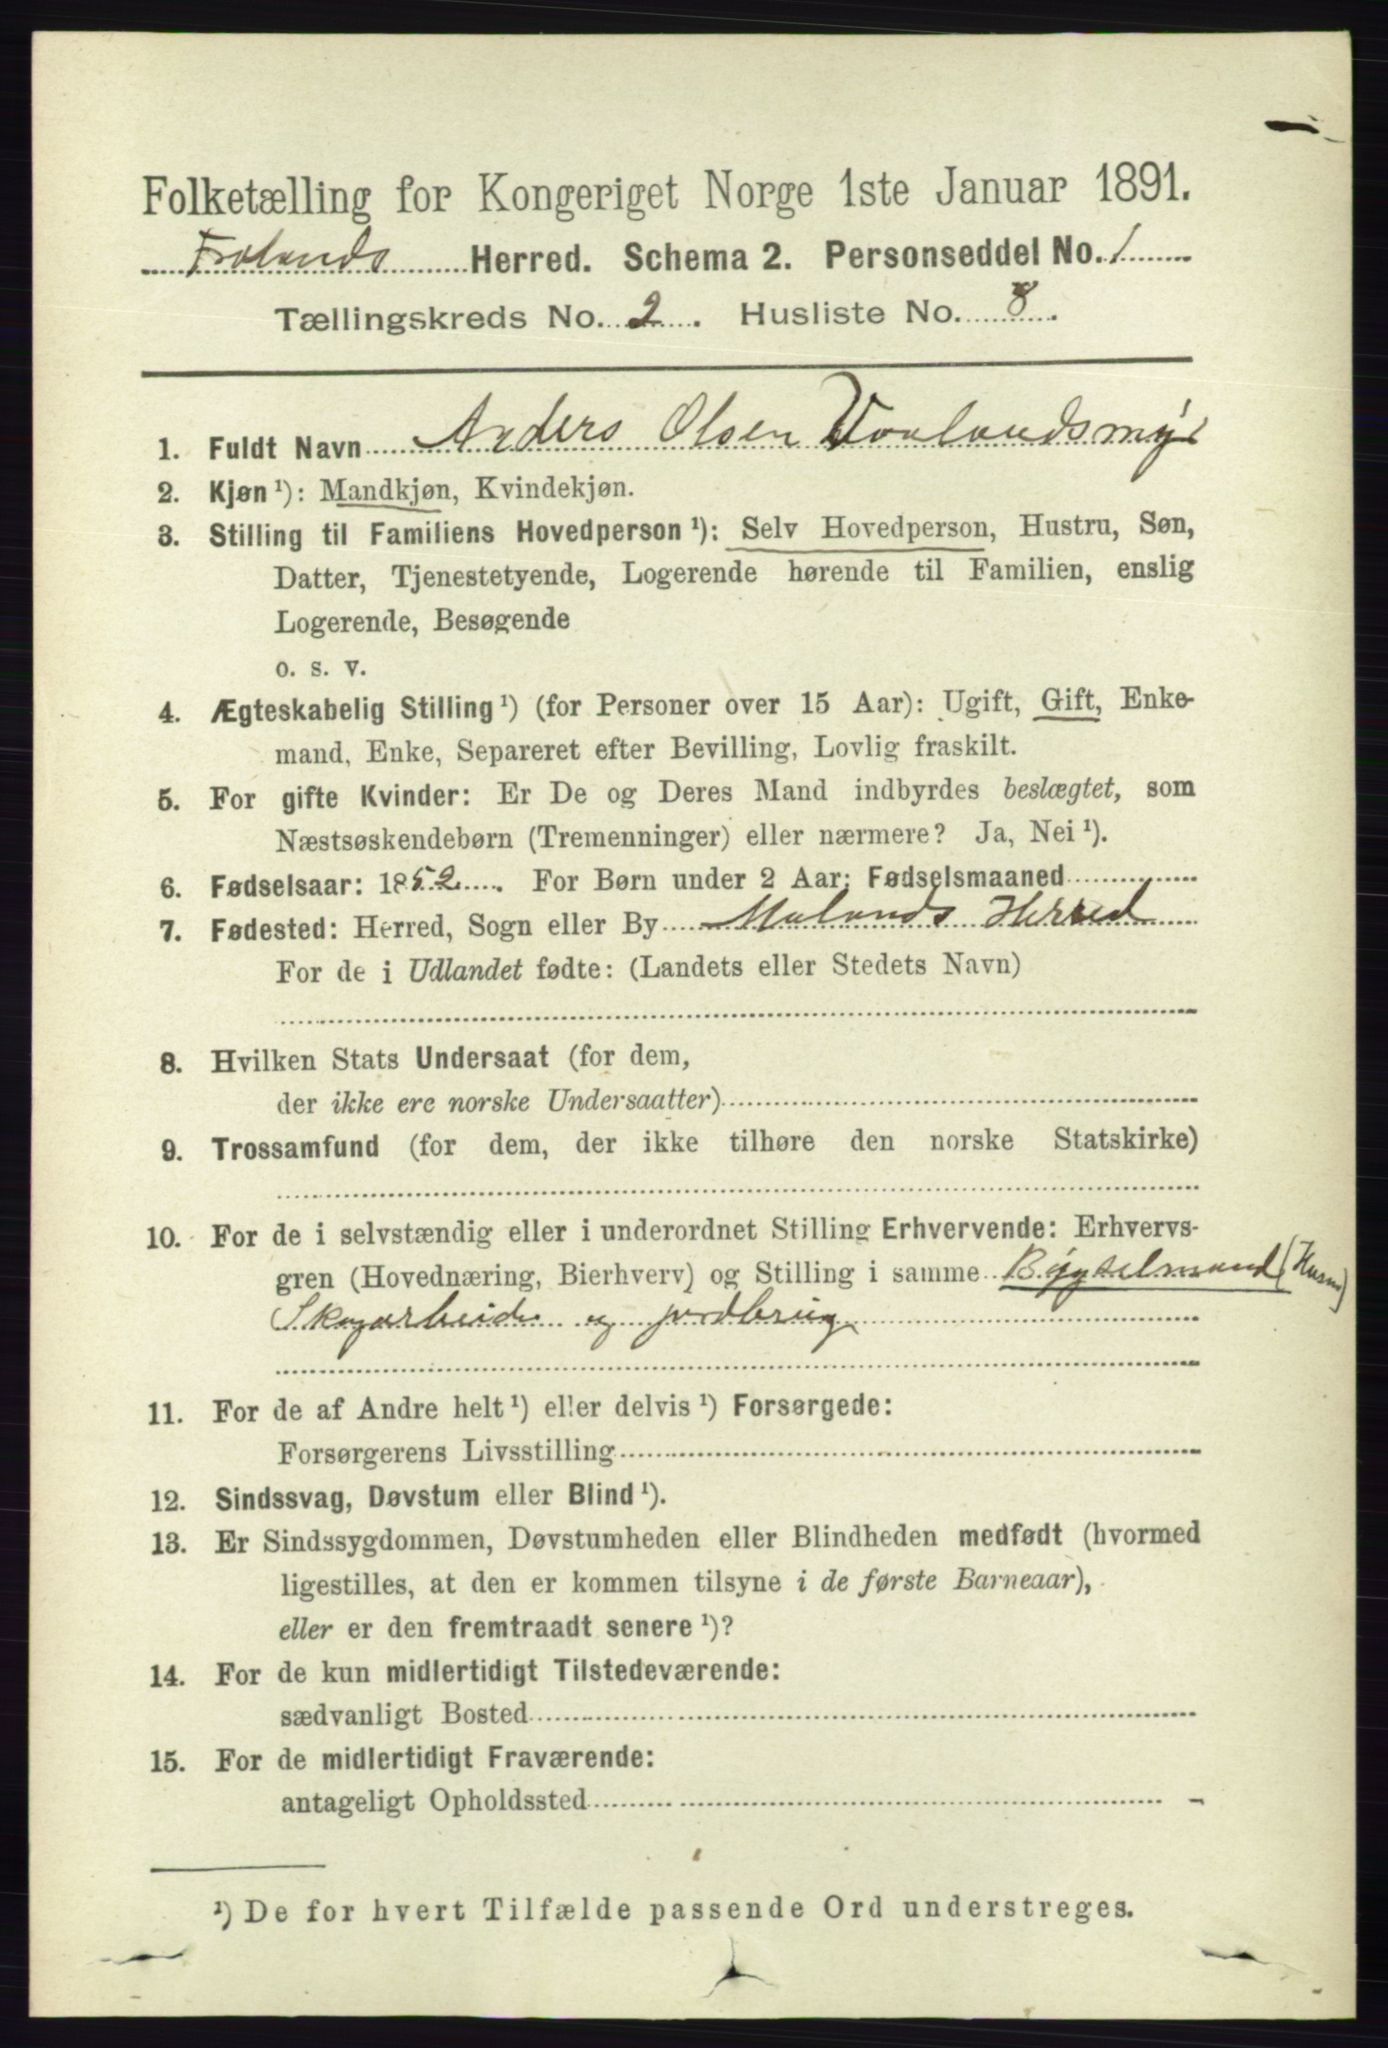 Folketælling for Kongeriget Norge 1ste Januar 1891.
Frolands Herred. Schema 2. Personseddel No. 1
Tællingskreds No. 2. Husliste No. 8.
1. Fuldt Navn Anders Olsen Vaalandsmyr
2. Kjøn ¹): Mandkjøn, Kvindekjøn.
3. Stilling til Familiens Hovedperson ¹): Selv Hovedperson, Hustru, Søn,
Datter, Tjenestetyende, Logerende hørende til Familien, enslig
Logerende, Besøgende
o. s. v.
4. Ægteskabelig Stilling ¹) (for Personer over 15 Aar): Ugift, Gift, Enke-
mand, Enke, Separeret efter Bevilling, Lovlig fraskilt.
5. For gifte Kvinder: Er De og Deres Mand indbyrdes beslægtet, som
Næstsøskendebørn (Tremenninger) eller nærmere? Ja, Nei ¹).
6. Fødselsaar: 1852. For Børn under 2 Aar: Fødselsmaaned
7. Fødested: Herred, Sogn eller By Molands Herred
For de i Udlandet fødte: (Landets eller Stedets Navn)
8. Hvilken Stats Undersaat (for dem,
der ikke ere norske Undersaatter)
9. Trossamfund (for dem, der ikke tilhøre den norske Statskirke)
10. For de i selvstændig eller i underordnet Stilling Erhvervende: Erhvervs-
gren (Hovednæring, Bierhverv) og Stilling i samme Bygselmand (Husm)
Skogarbeide og jordbrug
11. For de af Andre helt ¹) eller delvis ¹) Forsørgede:
Forsørgerens Livsstilling
12. Sindssvag, Døvstum eller Blind ¹).
13. Er Sindssygdommen, Døvstumheden eller Blindheden medfødt (hvormed
ligestilles, at den er kommen tilsyne i de første Barneaar),
eller er den fremtraadt senere ¹)?
14. For de kun midlertidigt Tilstedeværende:
sædvanligt Bosted
15. For de midlertidigt Fraværende:
antageligt Opholdssted
¹) De for hvert Tilfælde passende Ord understreges.